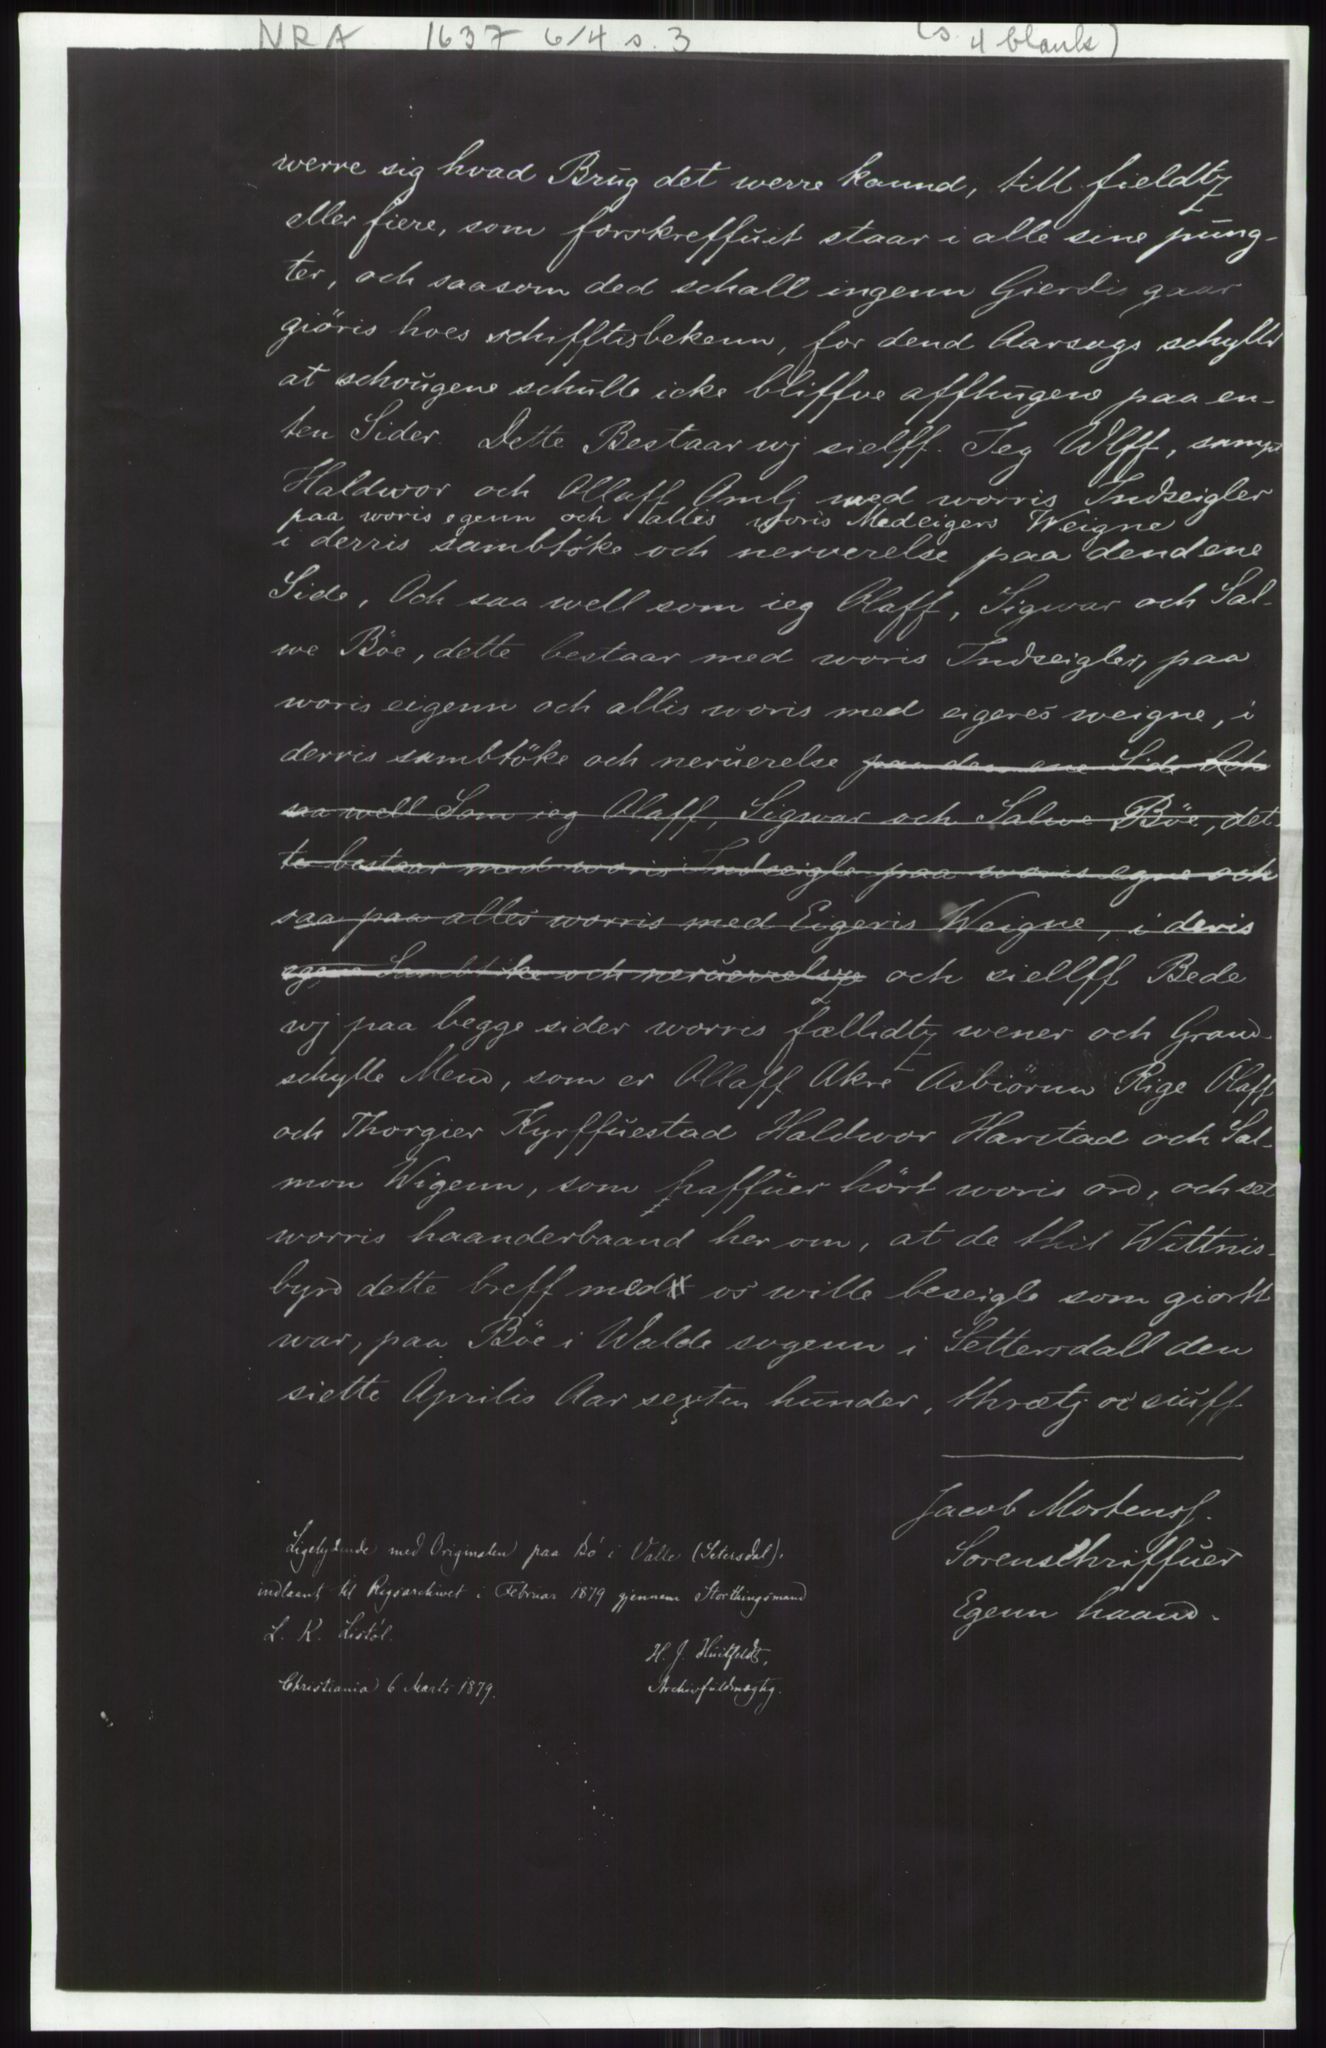 NRA 1637 6/4 s. 3 (s. 4 blank)
werre sig hvad Brug det werre kannd, till fieldtz
eller fiere, som forskreffuit staar i alle sine pung-
ter, och saasom ded schall ingenn Gierdis gaar
giöris hoes schifftisbekenn, for dend Aarsags schylld
at schougene schulle icke bliffve affhugene paa en-
ten Sider. Dette Bestaar wj sielff. Jeg Ulff, sampt
Haldwor och Ollaff Omlj med worris Indseigler
paa woris egenn och alles woris Medeigers Weigne
i derris sambtöke och nerverelse paa dend ene
Side, Och saa well som ieg Olaff, Sigwar och Sal-
we Böe, dette bestaar med woris Indseigler, paa
woris eigenn och allis woris med eigeres weigne, i
derris sambtöke och neruerelse paa den ene Side Och
saa well Som ieg Olaff, Sigwar och Salwe Böe, det-
te bestaar med woris Indseigle paa woris egne och
saa paa alles worris med Eigeris Weigne, i deris
egene Sambtöke och neruerrelsze och siellff Bede
wj paa begge sider worris fællidtz wener och Grand-
schylle Mend, som er Ollaff Akre Asbiörnn Rige Olaff
och Thorgier Kyrffuestad Haldwor Harstad och Sal-
mon Wigenn, som haffuer hört woris ord, och set
worris haanderbaand her om, at de thil Wittnis-
byrd dette breff med os wille beseigle som giortt
war, paa Böe i Walde sogenn i Settersdall den
siette Aprilis Aar sexten hunder, thrætj oc siuff.
Jacob Mortenss.
Sorenschriffuer
Egenn haand.
Ligelydende med Originalen paa Bö i Valle (Setersdal).
indlaant til Rigsarchivet i Februar 1879 gjennem Storthingsmand
L. K. Listöl.
H. J. Huitfeldt,
Christiania 6 Marts 1879.
Archivfuldmægtig.